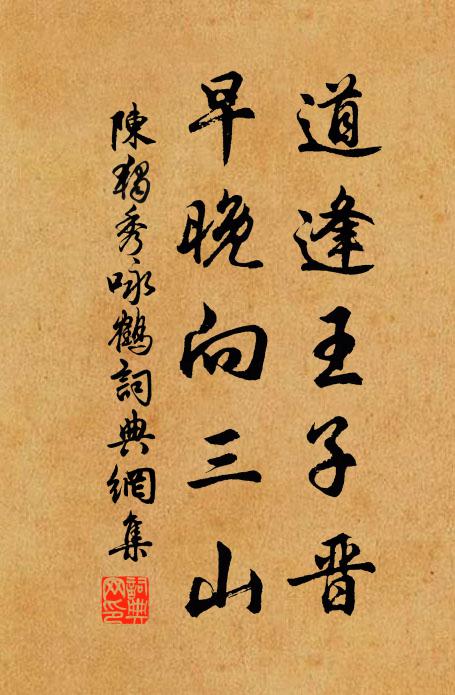 道逢王子晋
早晚向三山
陳獨秀咏鶴詞典網集
詞典網印